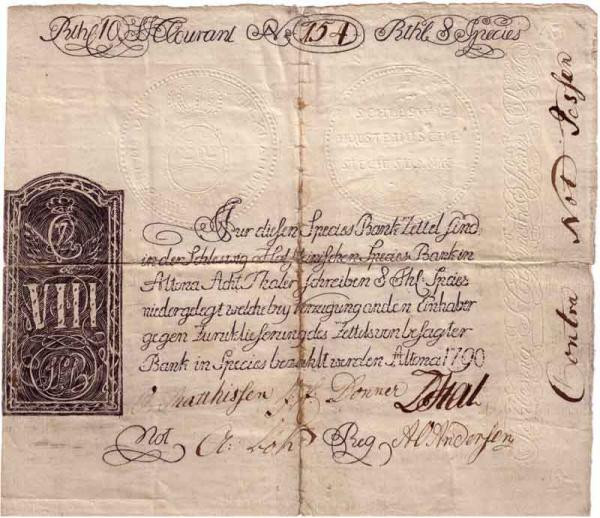 Rthl 10 Courant No 154 Rthl 8 Species
SCHLESWIG
HOLSTEINISCHE
SPECIES BANK
Für diesen Species Bank Zettel sind
in der Schleswig Holsteinischen Species Bank in
Altona Acht Thaler schreiben 8 Rthl: Species
niedergelegt welche bey Vorzeigung an den Einhaber
gegen Zurükliefrung des Zettels von besagter
Bank in Species bezahlt werden Altona 1790
C 7
VIII
Matthissen Donner
Not A: Reg Andersen
Contra Not Jessen